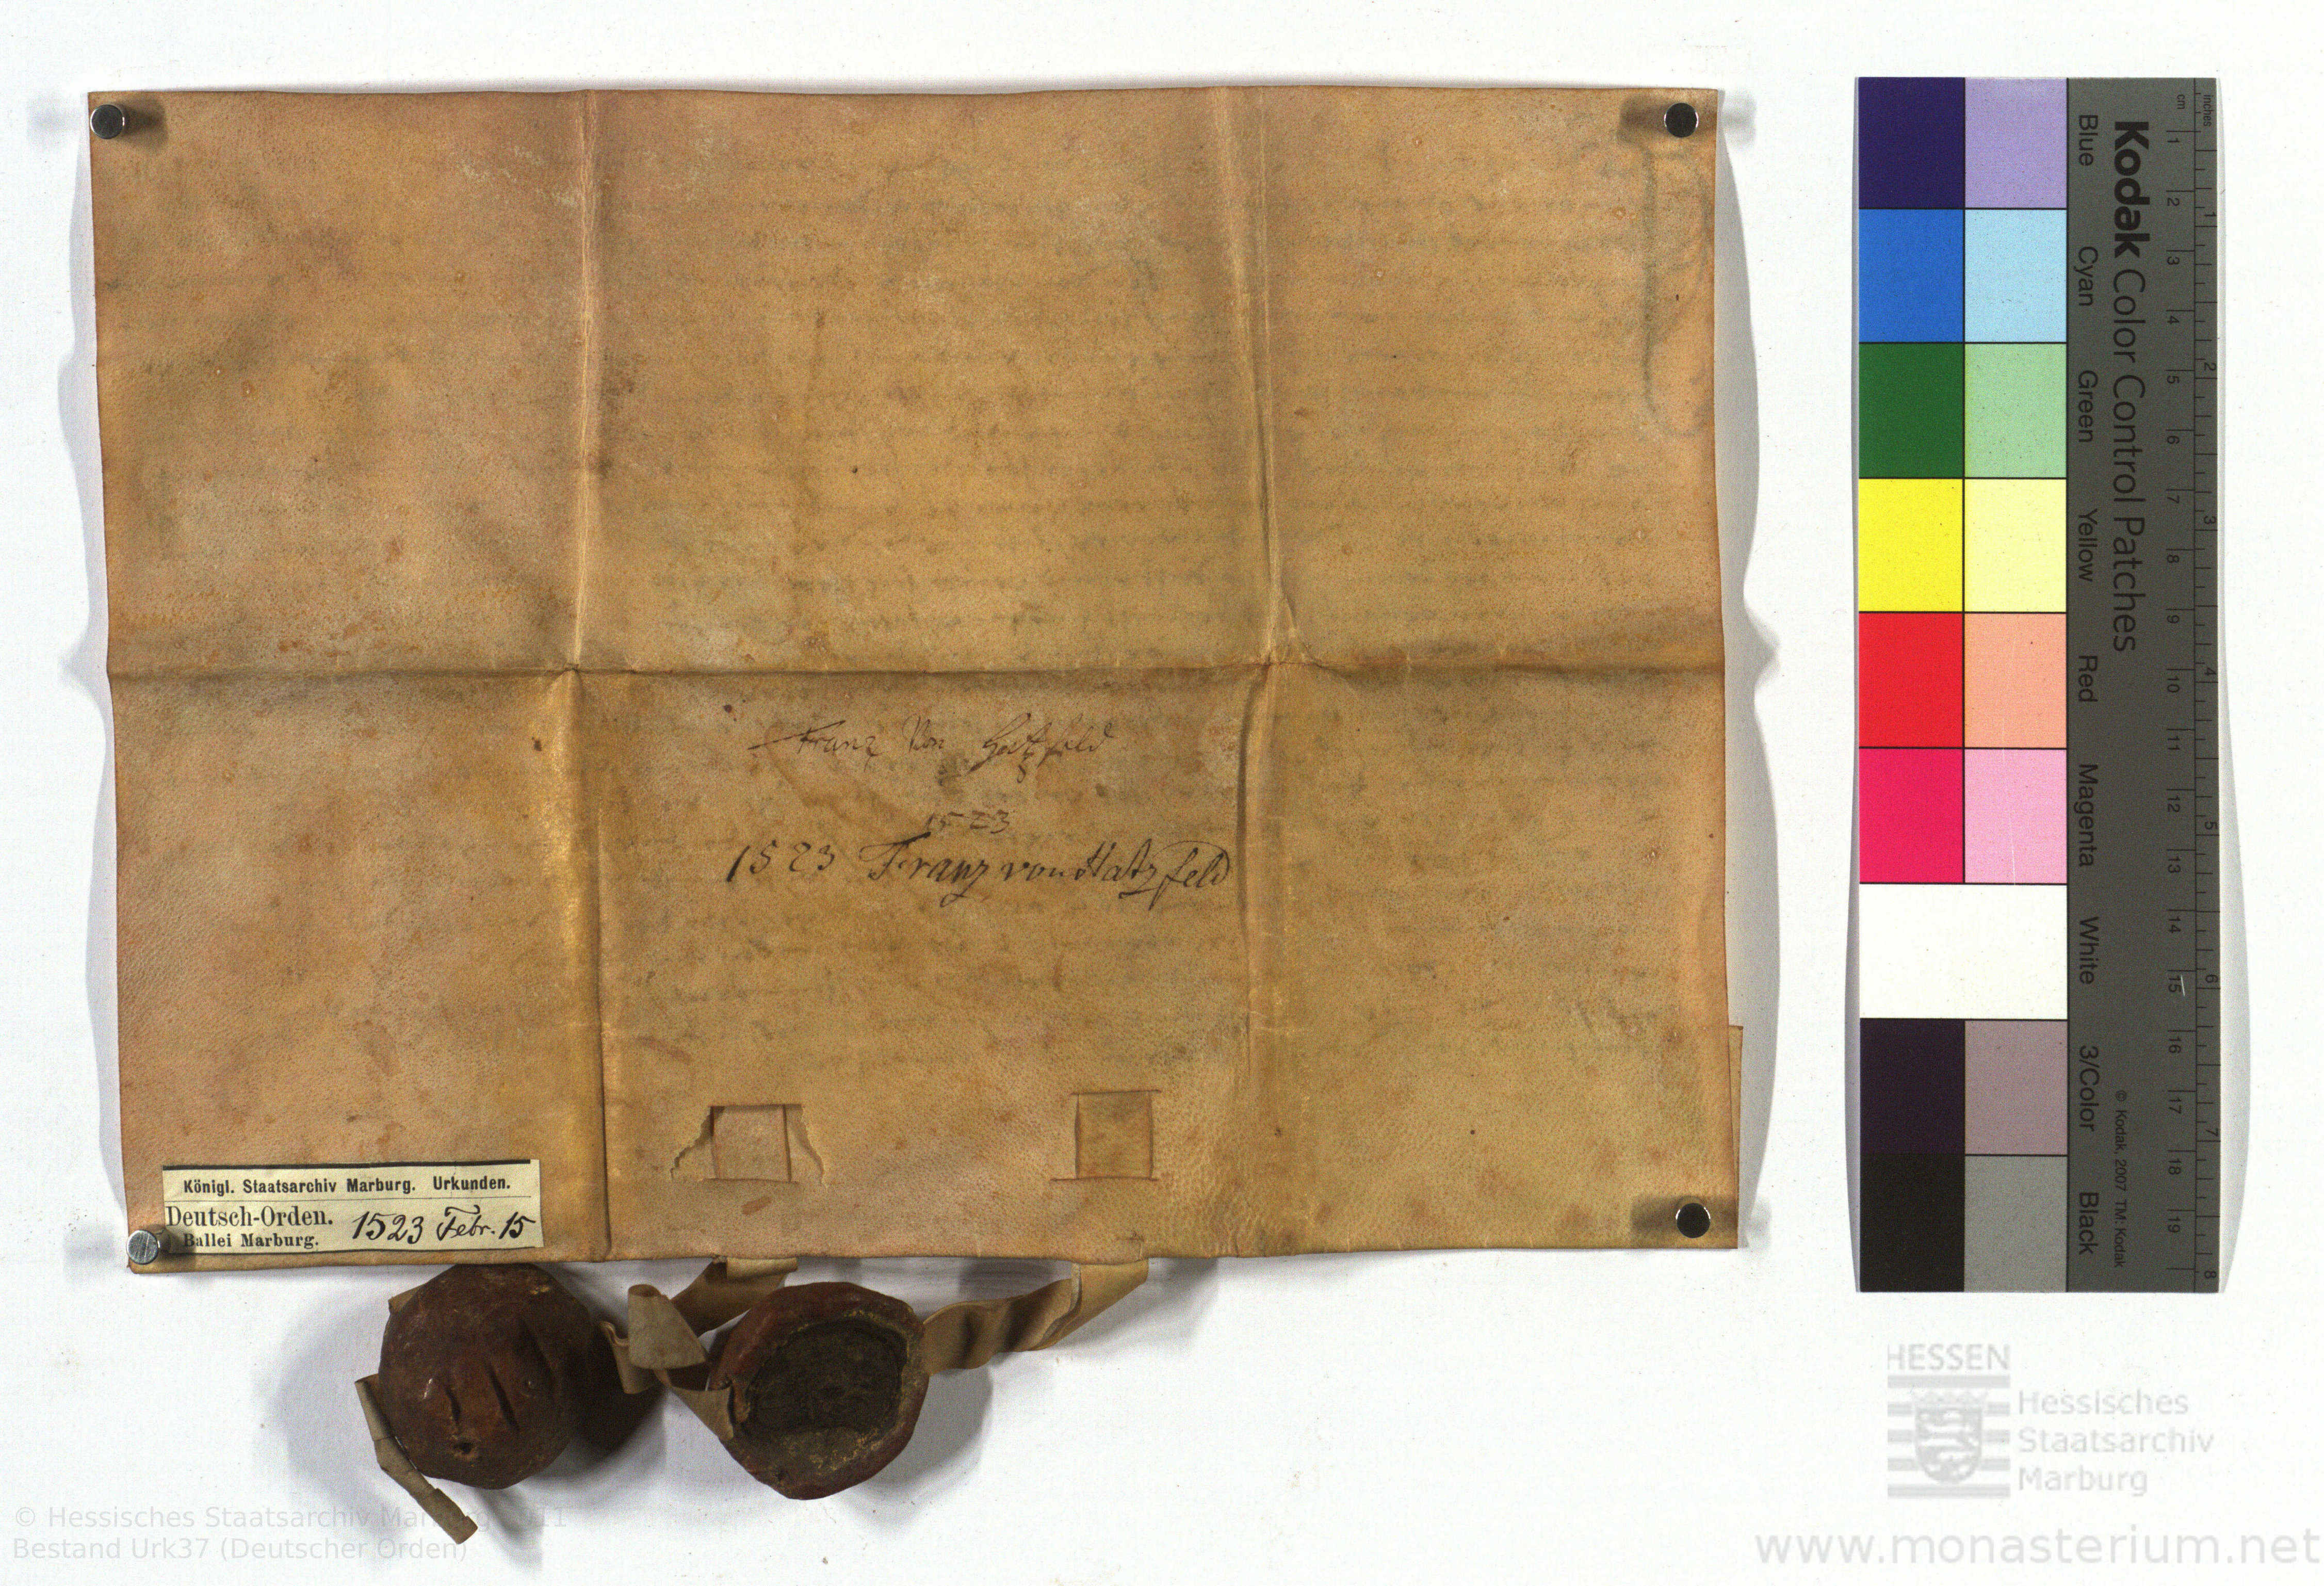 Franz Von Hatzfeld
1523
1523 Franz von Hatzfeld
Königl. Staatsarchiv Marburg. Urkunden.
Deutsch-Orden.
Ballei Marburg.
1523 Febr. 15
Kodak Color Control Patches
Blue Cyan Green Yellow Red Magenta White 3/Color Black
© Kodak, 2007 TM: Kodak
cm 1 2 3 4 5 6 7 8 9 10 11 12 13 14 15 16 17 18 19
inches 1 2 3 4 5 6 7 8
HESSEN
Hessisches
Staatsarchiv
Marburg
© Hessisches Staatsarchiv Marburg 2011
Bestand Urk37 (Deutscher Orden)
www.monasterium.net